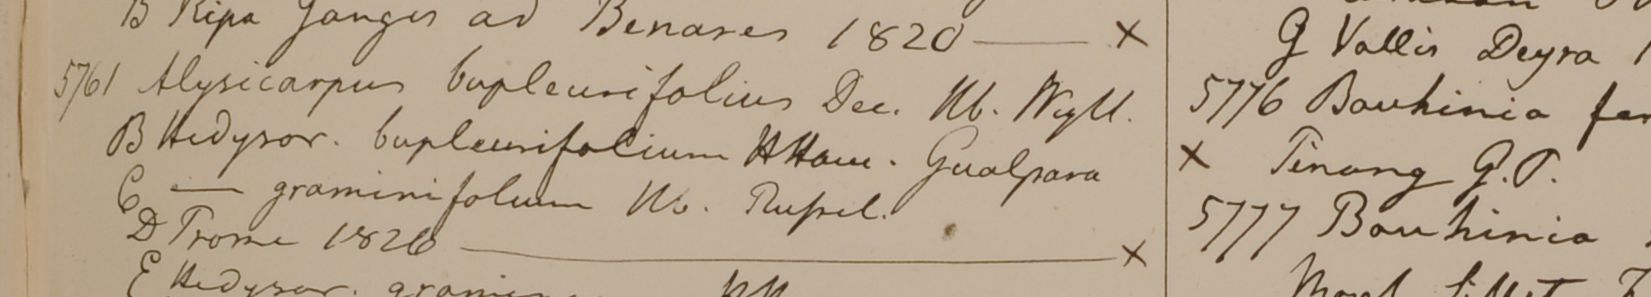 B Ripa Gangis ad Benares 1820 —— ×
5761 Alysicarpus bupleurifolius Dec. Hb. Wight.
B Hedysar. bupleurifolium HHam. Gualpara
C —— graminifolium Hb. Russel.
D Prome 1826 —— ×
E Hedysar.
G Vallis Deyra
5776 Bauhinia
× Pinang G.P.
5777 Bauhinia